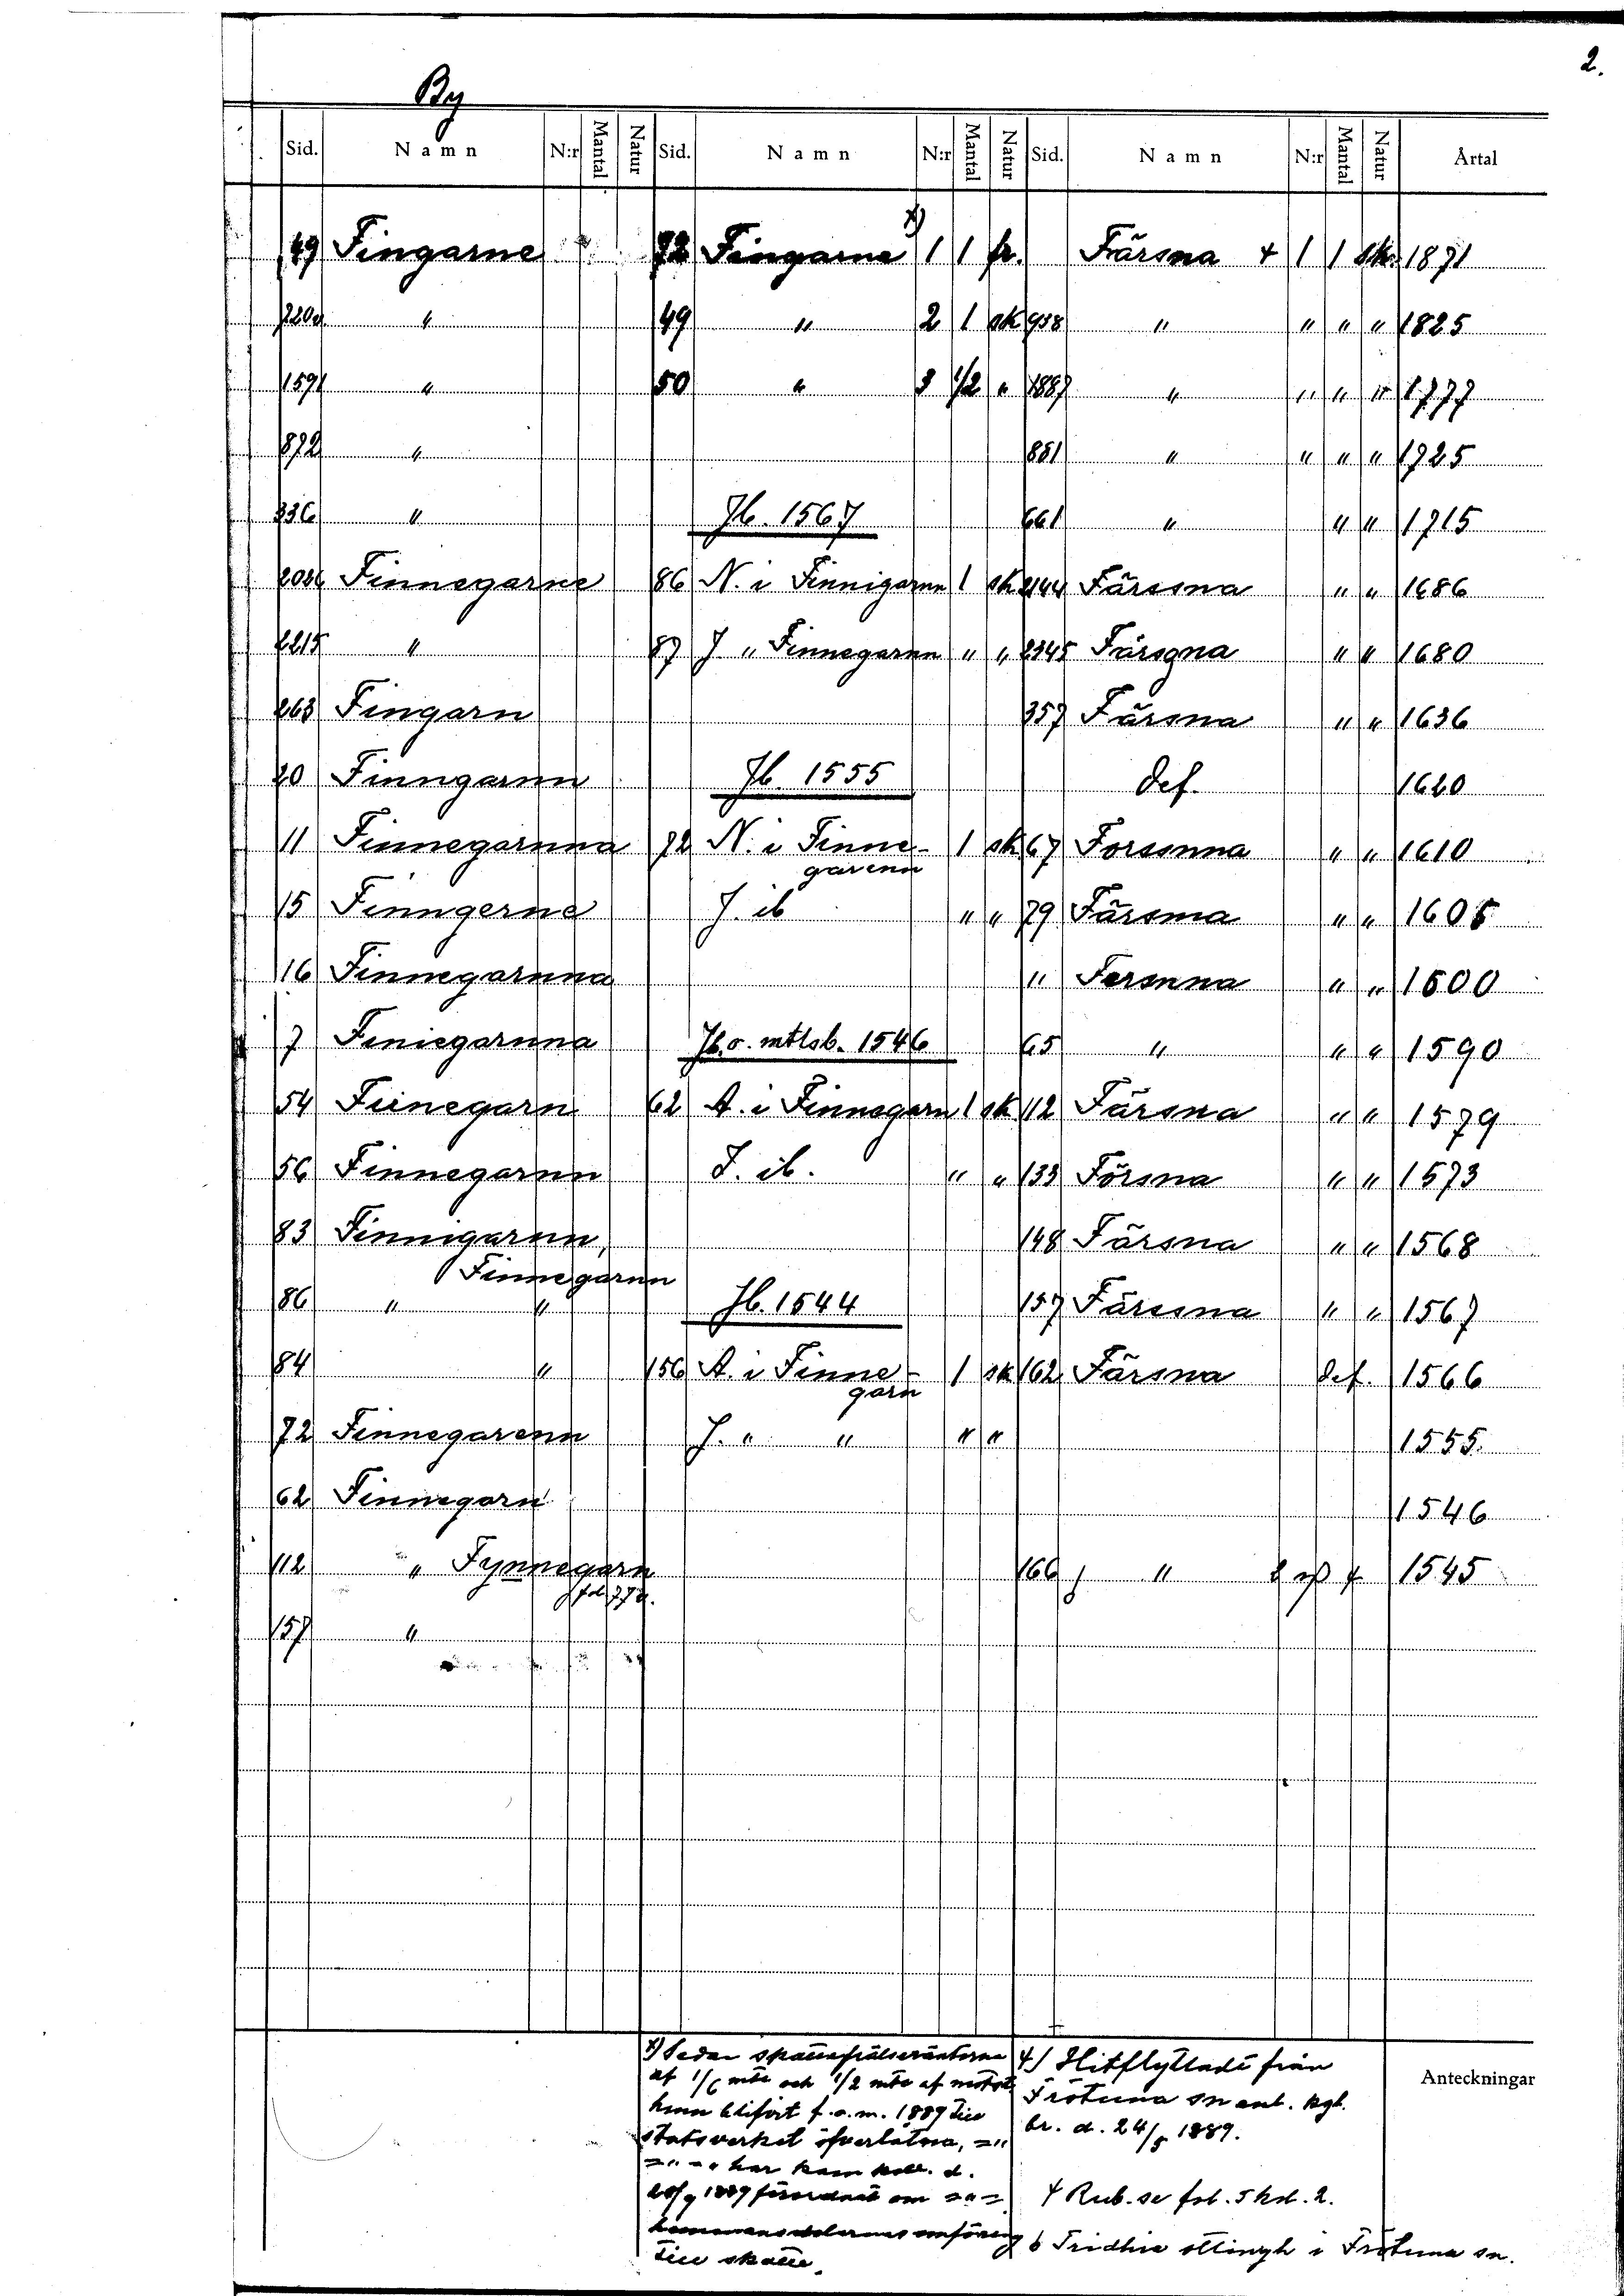 2.
By
Sid. Namn N:r Mantal Natur Sid. Namn N:r Mantal Natur Sid. Namn N:r Mantal Natur Årtal
49 Fingarne 72 Fingarne x) 1 1 fr. Färsna + 1 1 sk. 1871
220a " 49 " 2 1 sk 938 " " " " 1825
1591 " 50 " 3 1/2 " 1887 " " " " 1777
872 " 881 " " " " 1725
336 " Jb. 1567 661 " " " 1715
2026 Finnegarne 86 N. i Finnigarnn 1 sk 2144 Färssna " " 1686
2215 " 87 J " Finnegarnn " " 2345 Färsgna " " 1680
263 Fingarn 357 Färsna " " 1636
20 Finngarnn Jb. 1555 def. 1620
11 Finnegarnna 72 N. i Finne- 1 sk 67 Forssnna " " 1610
garenn
15 Finngerna J. ib " " 79 Färsma " " 1605
16 Finnegarnna " Fersnna " " 1600
7 Finiegarnna Jb. o. mtlsb. 1546 65 " " " 1590
54 Fiinegarn 62 A. i Finnegarn 1 sk 112 Färsna " " 1579
56 Finnegarnn J. ib. " " 133 Försna " " 1573
83 Finnigarnn, 148 Färsna " " 1568
Finnegarnn
86 " " Jb. 1544 157 Färssna " " 1567
84 " 156 A. i Finne- 1 sk 162 Färsna def. 1566
garn
72 Finnegarenn J. " " " " 1555
62 Finnegarn 1546
112 " Fynnegarn 166 " 1545
157 "
Anteckningar
x) Sedan skattefrälseräntorna
af 1/6 mtl och 1/2 mtl af
blifvit f. o. m. 1889
statsverket öfverlåtna, ="
=" - " har kam koll. d.
20/9 1889 förordnat om ="=
hemmansdelarnes omföring
till skatte.
+) Hitflyttadt från
Frötuna sn enl. kgl.
br. d. 24/5 1889.
+ Rub. se fol. 5 hd. 2.
b Tridhie ottingh i Frötuna sn.